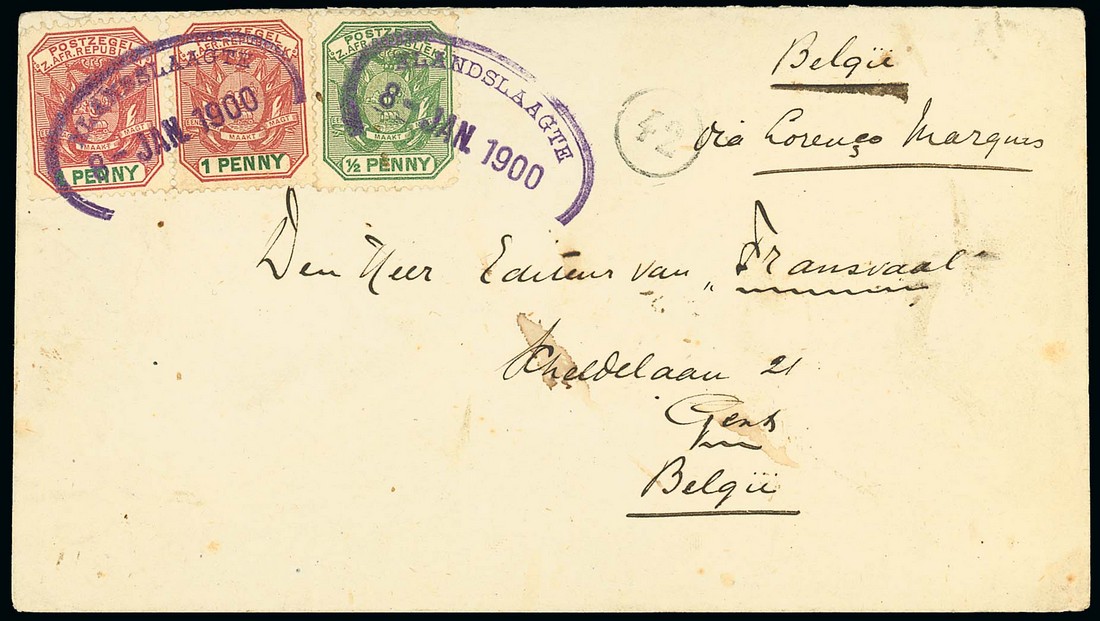 POSTZEGEL
Z. AFR. REPUBLIEK
EENDRAGT MAAKT MAGT
1 PENNY
POSTZEGEL
Z. AFR. REPUBLIEK
EENDRAGT MAAKT MAGT
1 PENNY
POSTZEGEL
Z. AFR. REPUBLIEK
MAAKT MAGT
½ PENNY
ELANDSLAAGTE
8 - JAN. 1900
ELANDSLAAGTE
8 - JAN. 1900
42
België
via Lorenço Marques
Den Heer Editeur van „Transvaal"
Scheldelaan 21
Gent
België